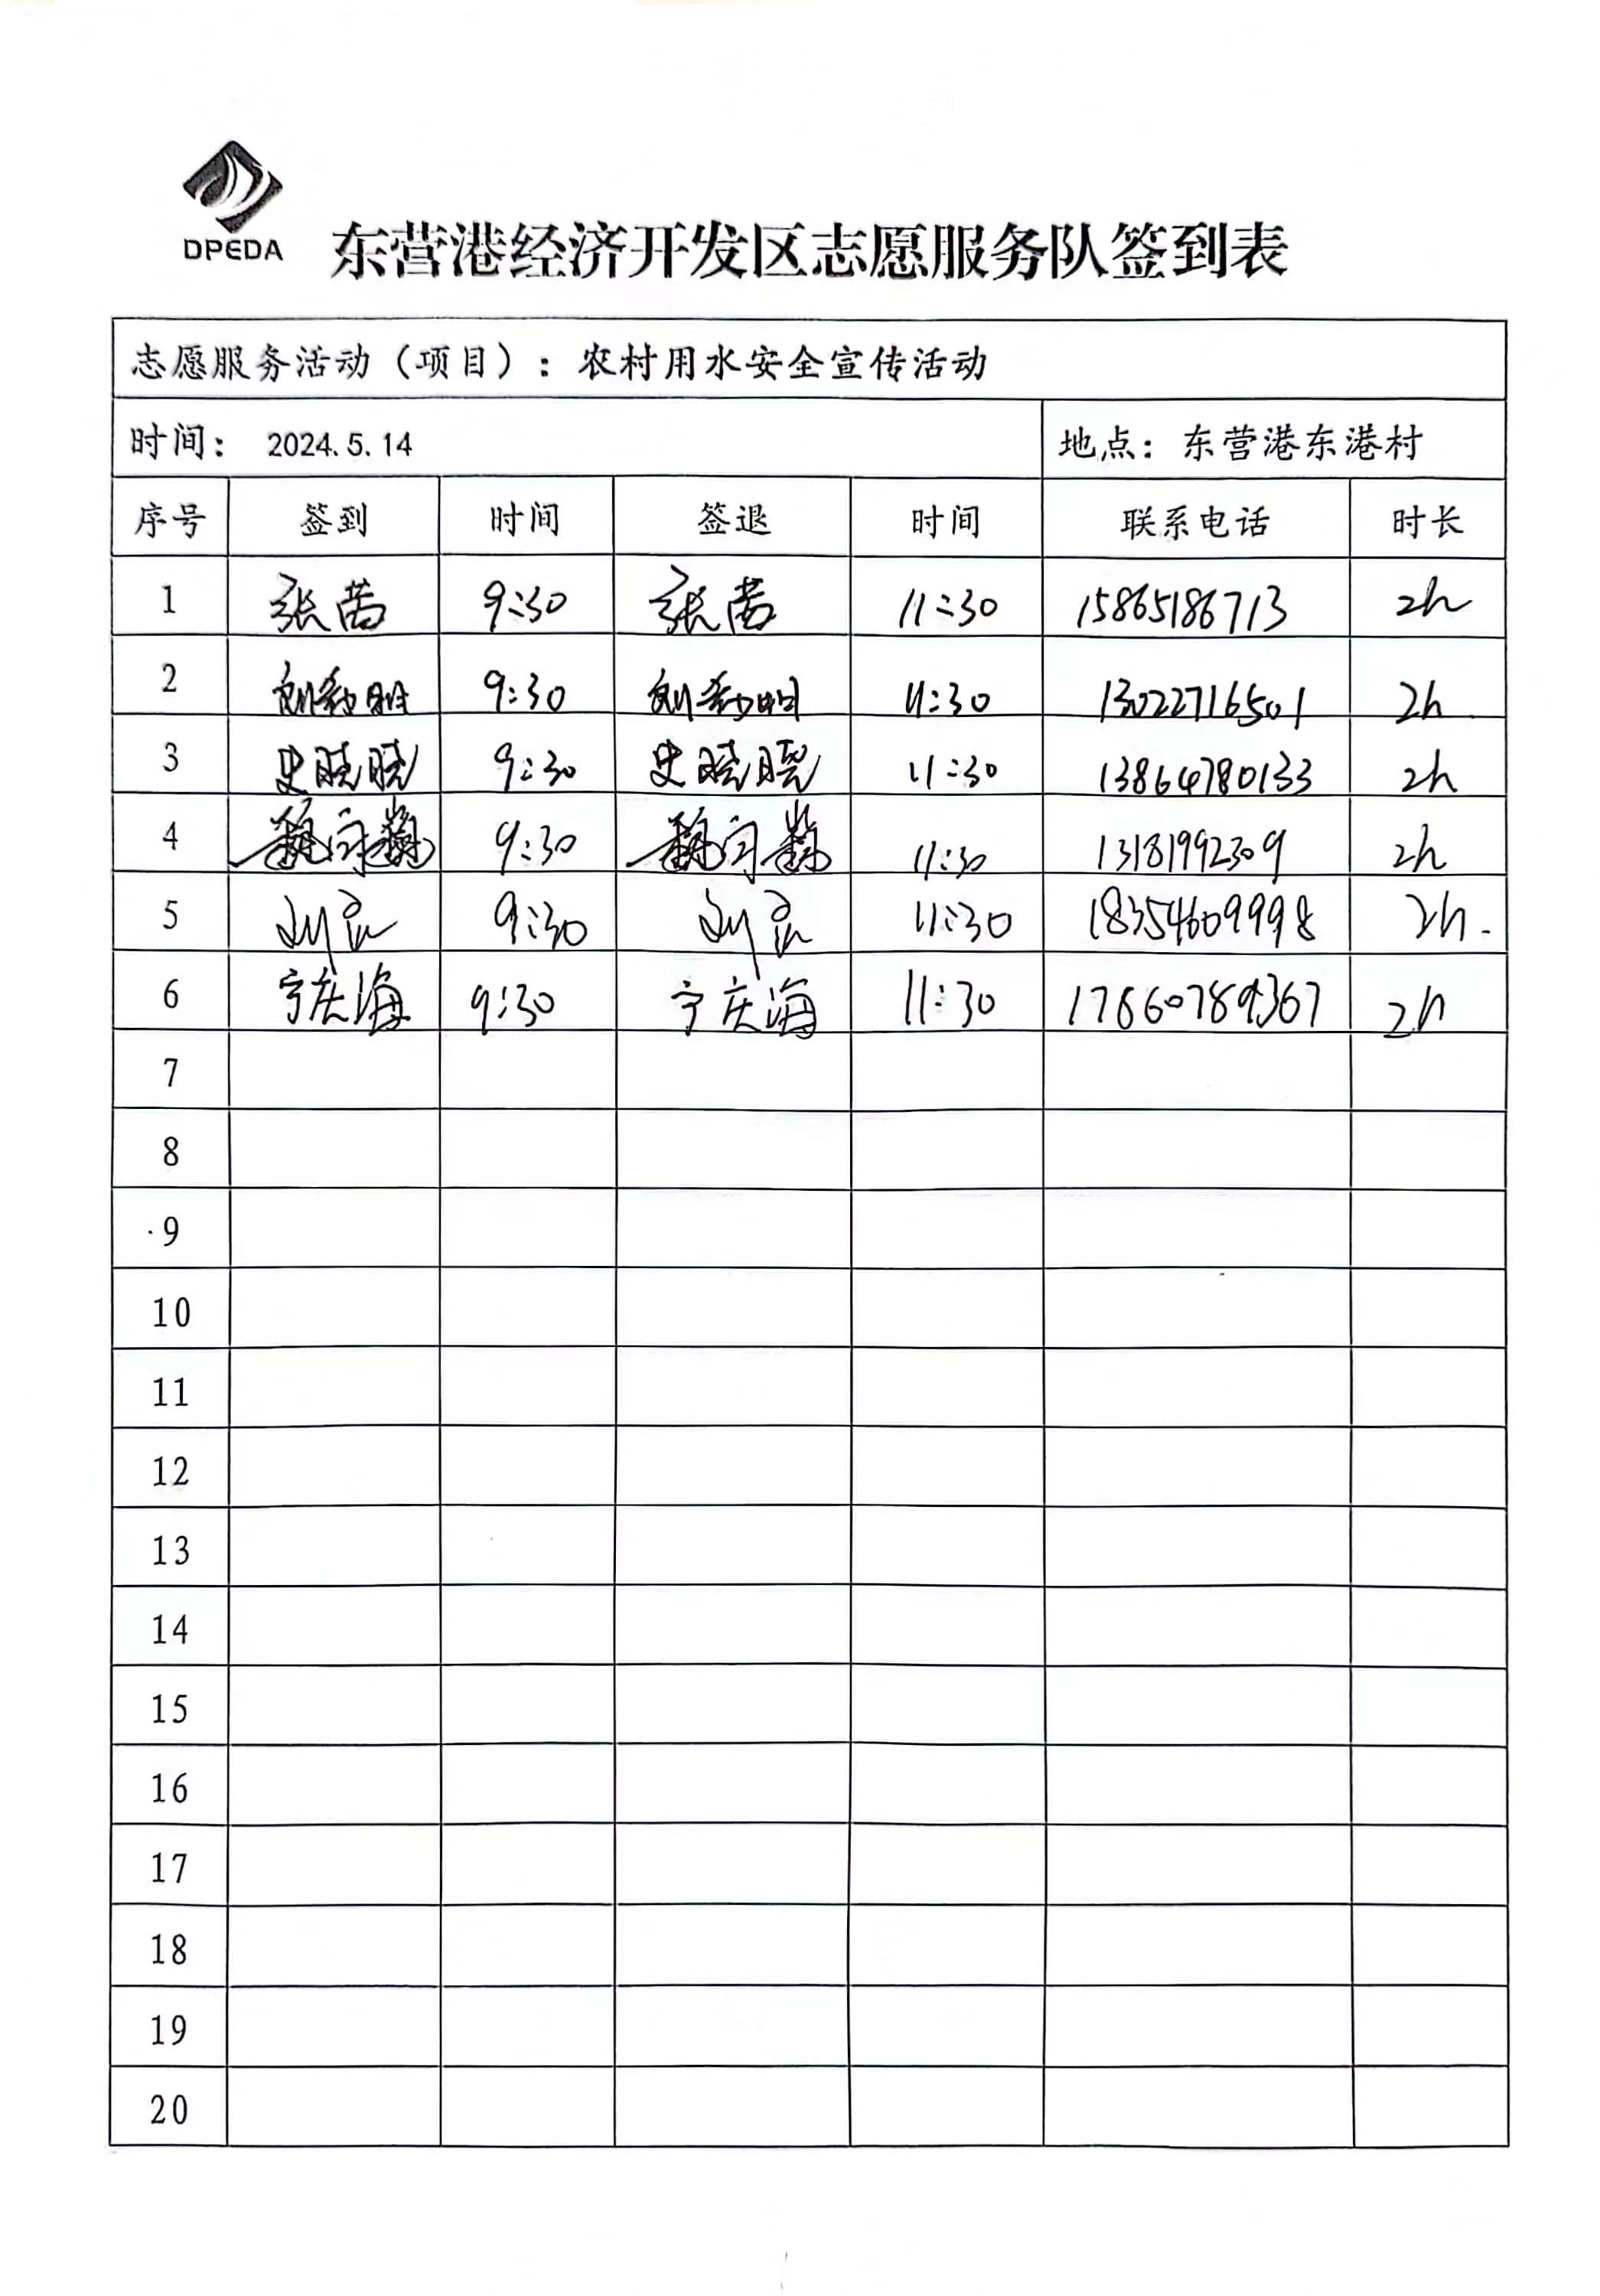 DPEDA
东营港经济开发区志愿服务队签到表
志愿服务活动（项目）：农村用水安全宣传活动
时间： 2024.5.14 地点：东营港东港村
序号 签到 时间 签退 时间 联系电话 时长
1 张茜 9:30 张茜 11:30 15865186713 2h
2 9:30 11:30 13022716501 2h
3 史晓晓 9:30 史晓晓 11:30 13864780133 2h
4 9:30 11:30 13181992309 2h
5 9:30 11:30 18354609998 2h.
6 宁庆海 9:30 宁庆海 11:30 17860789367 2h
7
8
9
10
11
12
13
14
15
16
17
18
19
20